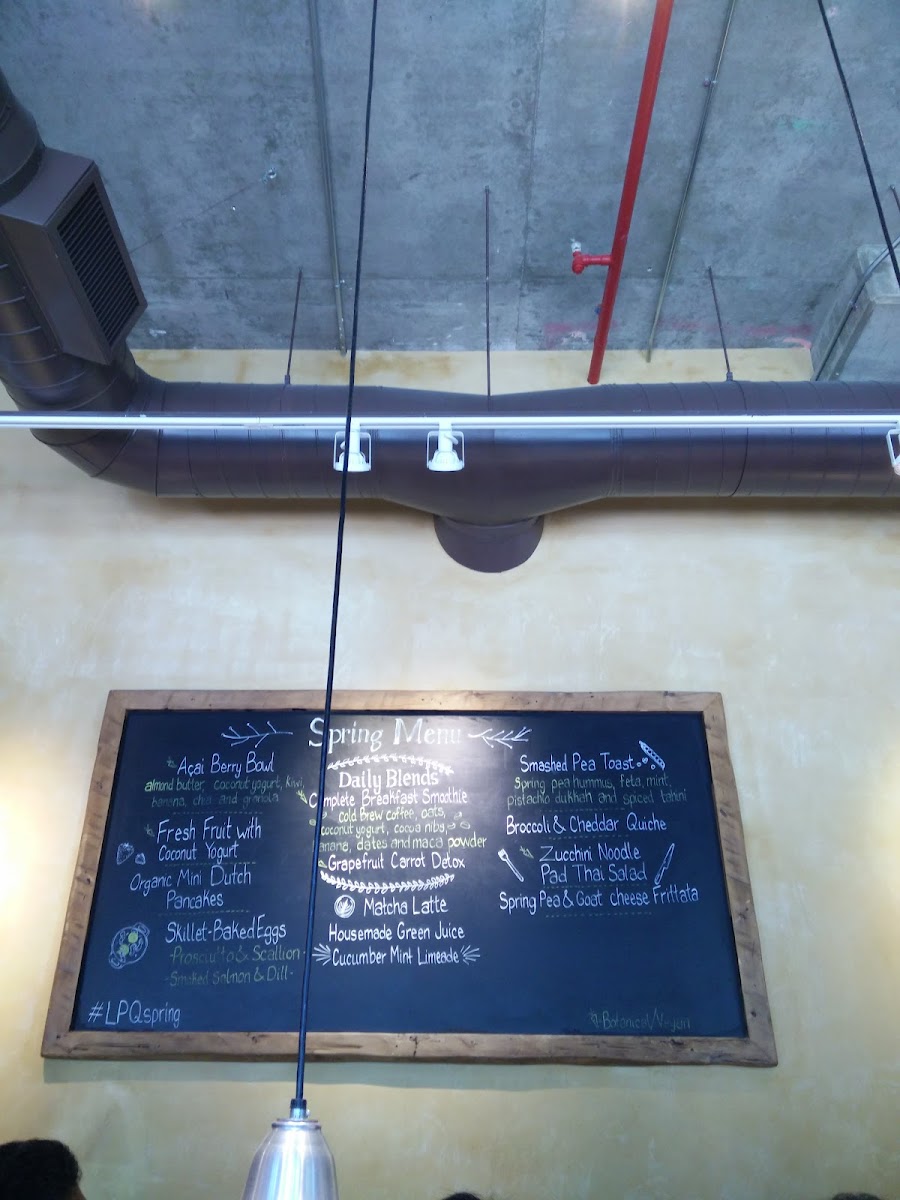 Spring Menu
Açai Berry Bowl
almond butter, coconut yogurt, kiwi,
banana, chia and granola
Fresh Fruit with
Coconut Yogurt
Organic Mini Dutch
Pancakes
Skillet-Baked Eggs
-Prosciutto & Scallion-
-Smoked Salmon & Dill-
#LPQspring
Daily Blends
Complete Breakfast Smoothie
cold Brew coffee, oats,
coconut yogurt, cocoa nibs,
banana, dates and maca powder
Grapefruit Carrot Detox
Matcha Latte
Housemade Green Juice
Cucumber Mint Limeade
Smashed Pea Toast
Spring pea hummus, feta, mint,
pistachio dukkah and spiced tahini
Broccoli & Cheddar Quiche
Zucchini Noodle
Pad Thai Salad
Spring Pea & Goat cheese Frittata
Botanical/Vegan